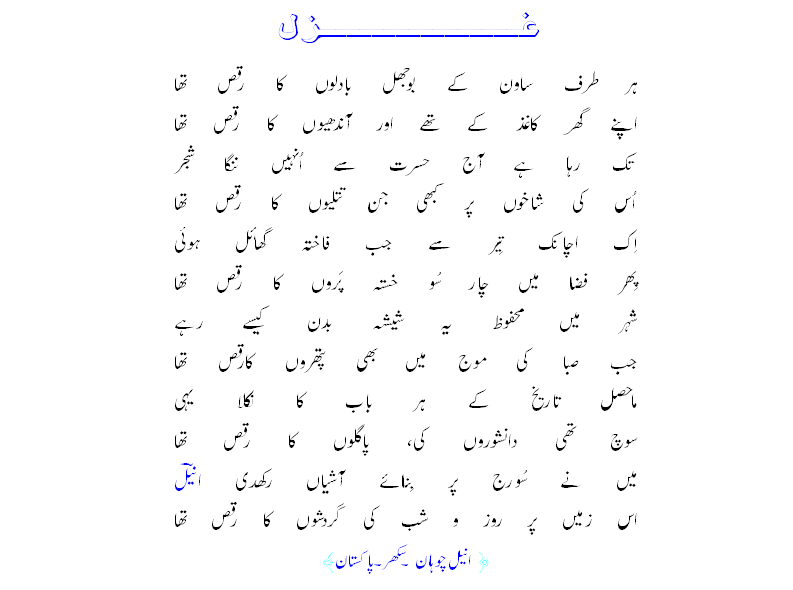 غـــــــــــزل
ہر طرف ساون کے بوجھل بادلوں کا رقص تھا
اپنے گھر کاغذ کے تھے اور آندھیوں کا رقص تھا
تک رہا ہے آج حسرت سے اُنہیں ننگا شجر
اُس کی شاخوں پر کبھی جن تتلیوں کا رقص تھا
اِک اچانک تِیر سے جب فاختہ گھائل ہوئی
پھِر فضا میں چار سُو خستہ پَروں کا رقص تھا
شہر میں محفوظ یہ شیشہ بدن کیسے رہے
جب صبا کی موج میں بھی پتھروں کارقص تھا
ماحصل تاریخ کے ہر باب کا نکلا یہی
سوچ تھی دانشوروں کی، پاگلوں کا رقص تھا
میں نے سُورج پر بِنائے آشیاں رکھدی انیلؔ
اس زمیں پر روز و شب کی گردشوں کا رقص تھا
﴿انیل چوہان ۔سکھر۔پاکستان﴾